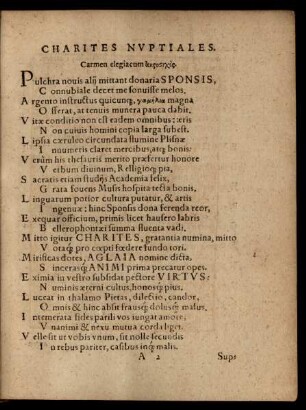 CHARITES NVPTIALES.
Carmen elegiacum
Pulchra nouis alij mittant donaria SPONSIS,
Connubiale decet me sonuisse melos,
Argento instructus quicunq; γαμήλια magna
Offerat, at tenuis munera pauca dabit,
Vitæ conditio non est eadem omnibus: æris
Non cuiuis homini copia larga subest.
Lipsia cæruleo circumdata flumine Plisnæ
Innumeris claret mercibus, atq; bonis:
Verùm his thesauris meritò præfertur honore
Verbum diuinum, Religioq; pia,
Sacratis etiam studijs Academia felix,
Grata fouens Musis hospita tecta bonis,
Linguarum potior cultura putatur, & artis
Ingenuæ: hinc Sponsis dona ferenda reor,
Exequar officium, primis licet hauserо labris
Bellerophontæi flumina fluenta vadi.
Mitto igitur CHARITES, gratantia numina, mitto
Voraq; pro cœpti fœdere fundo tori.
Mirificas dotes, AGLAIA nomine dicta,
Sinceras; ANIMI prima precatur opes.
Eximia in vestro subsidat pectore VIRTVS:
Numinis æterni cultus, honosq; pius,
Luceat in thalamo Pietas, dilectio, candor,
Omnis & hinc absit frausq; dolusq; malus,
Intemerata fides parili vos iungat amore,
Vnanimi & nexu mutua corda liget.
Velle sit ut vobis vnum, sit nolle secundis
In rebus pariter, casibus inq; malis.
A 2 Supe